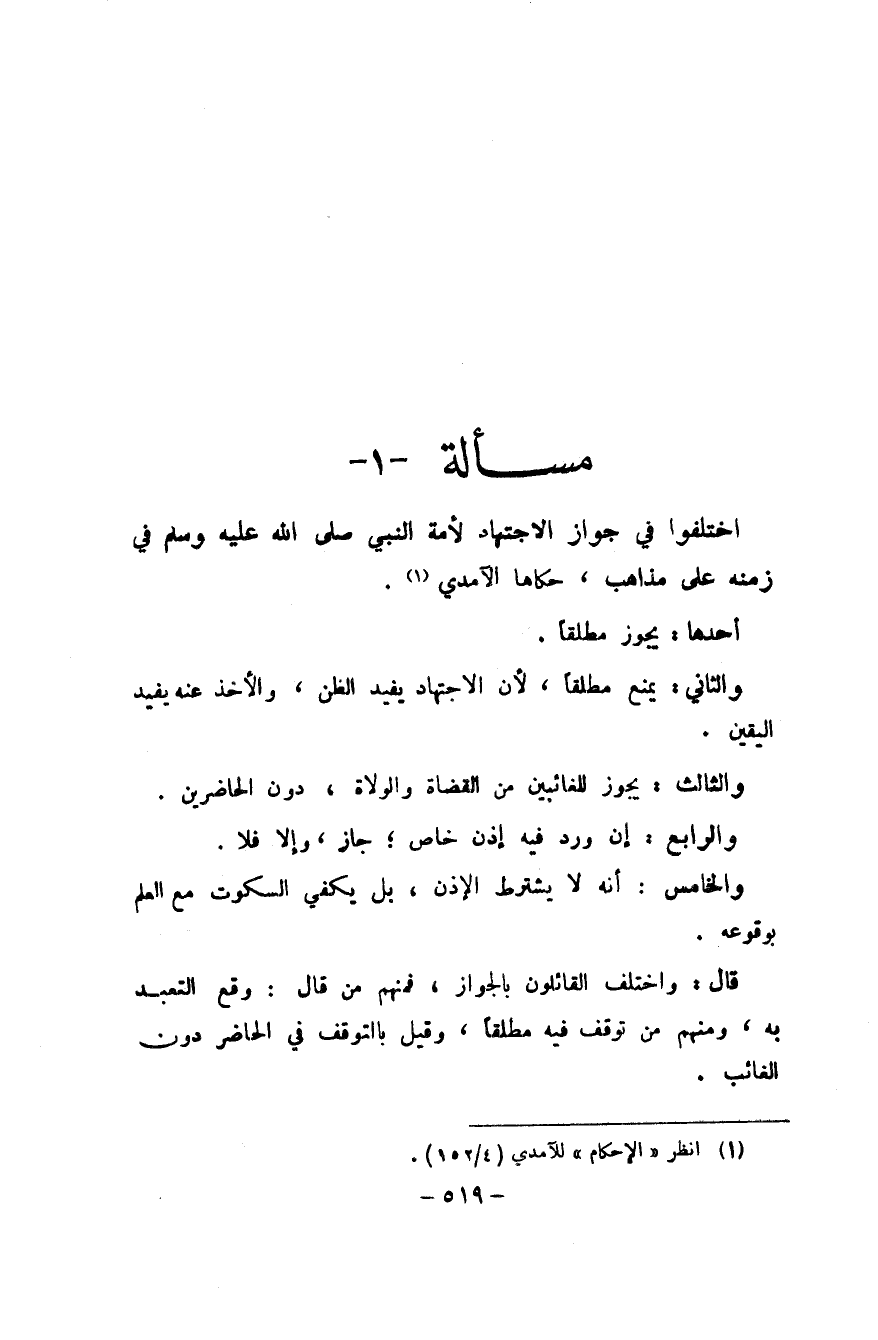 مسألة -١-
اختلفوا في جواز الاجتهاد لأمة النبي صلى الله عليه وسلم في
زمنه على مذاهب ، حكاها الآمدي (١) .
أحدها : يجوز مطلقاً .
والثاني : يمنع مطلقاً ، لأن الاجتهاد يفيد الظن ، والأخذ عنه يفيد
اليقين .
والثالث : يجوز للغائبين من القضاة والولاة ، دون الحاضرين .
والرابع : إن ورد فيه إذن خاص ؛ جاز ، وإلا فلا .
والخامس : أنه لا يشترط الإذن ، بل يكفي السكوت مع العلم
بوقوعه .
قال : واختلف القائلون بالجواز ، فمنهم من قال : وقع التعبد
به ، ومنهم من توقف فيه مطلقاً ، وقيل بالتوقف في الحاضر دون
الغائب .
(١) انظر « الإحكام » للآمدي (١٥٢/٤) .
- ٥١٩ -